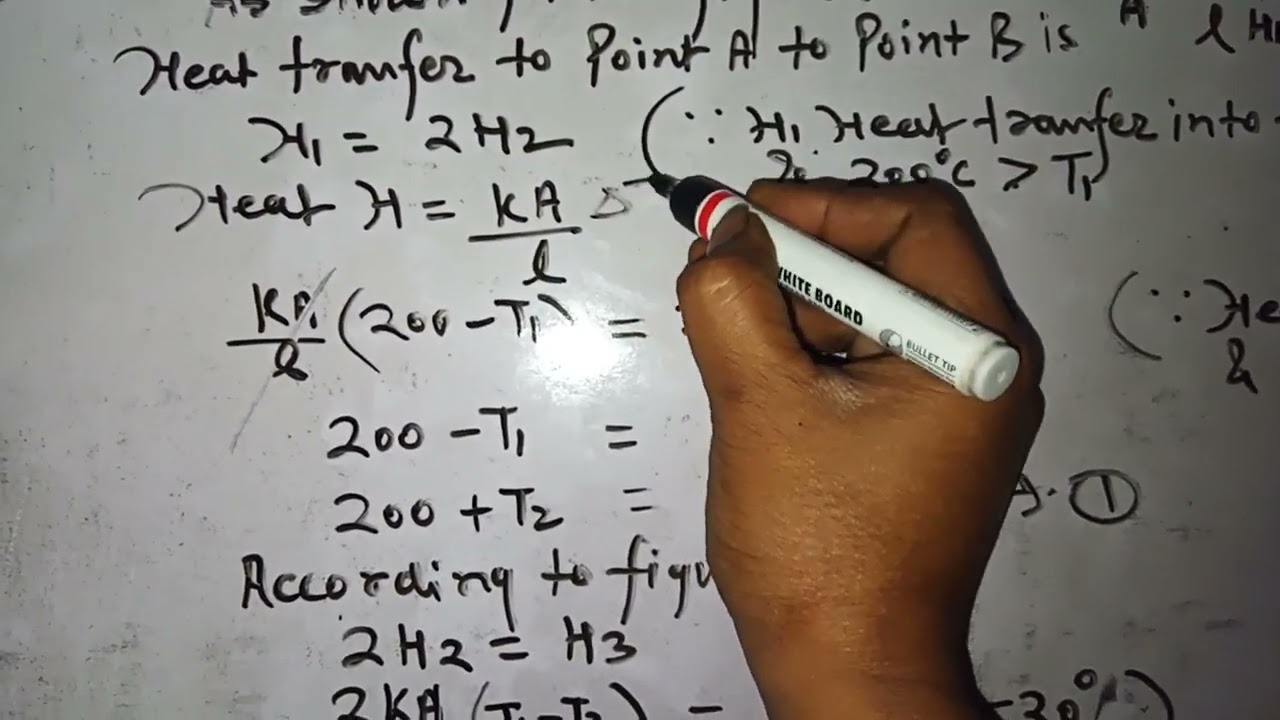 As shown
Heat tranfer to Point A to Point B is A l H1
H1 = 2H2 (∵ H1 Heat tranfer into
200°C > T1)
Heat H = KA/l Δ
KA/l (200 - T1) = (∵ He
&
200 - T1 =
200 + T2 = ①
According to figu
2H2 = H3
2KA (T1 - T2) = -20°
WHITE BOARD
BULLET TIP